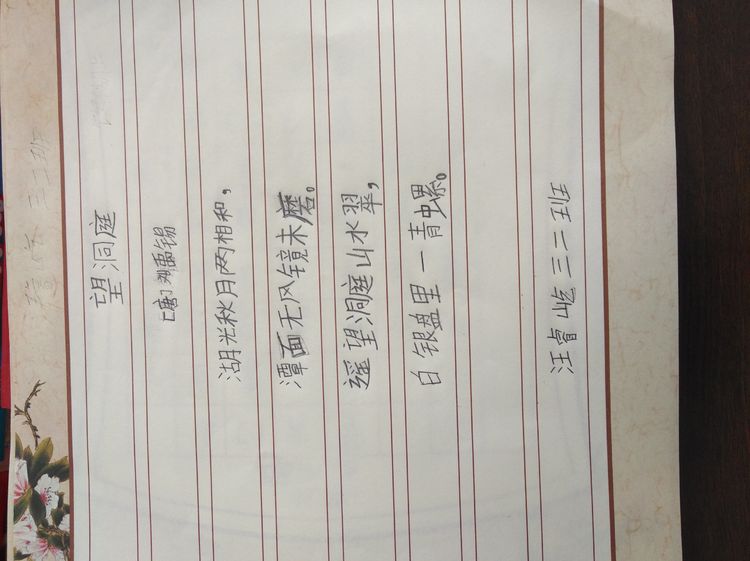 望洞庭
[唐]刘禹锡
湖光秋月两相和，
潭面无风镜未磨。
遥望洞庭山水翠，
白银盘里一青螺。
汪睿屹三二班
三二班